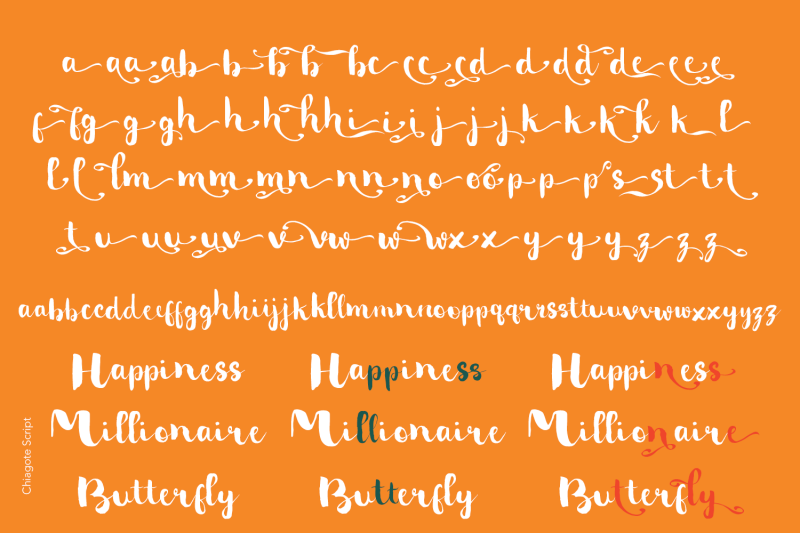 a aa ab b b b bc cc cd d dd de ee e
f fg g gh h h hh i i i j j j k k k k k l
l l lm mm mn nn no oo p p p s st t t
t u uu uv v vw w wx x y y y z z z
aabbccddeeffgghhiijjkkllmmnnooppqqrrssttuuvvwwxxyyzz
Happiness Happiness Happiness
Millionaire Millionaire Millionaire
Butterfly Butterfly Butterfly
Chiagote Script